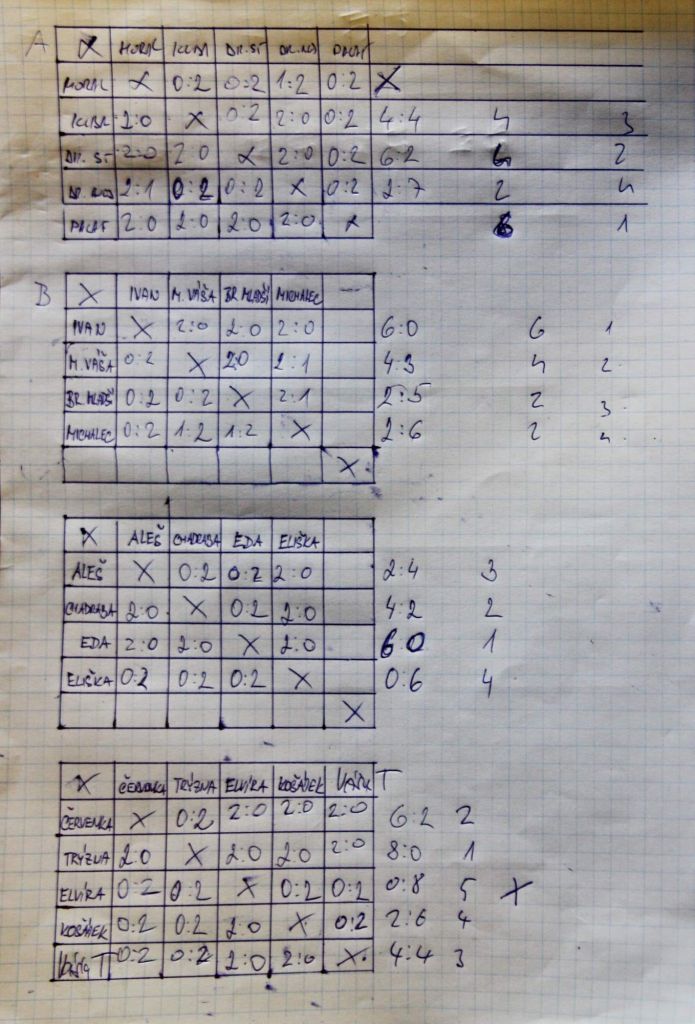 A X MORAL KUBA DR.ST DR.RŮŽ
X 0:2 0:2 1:2 0:2 X
2:0 X 0:2 2:0 0:2 4:4 4 3
DR.ST 2:0 2:0 X 2:0 0:2 6:2 6 2
2:1 0:2 0:2 X 0:2 2:7 2 4
2:0 2:0 2:0 2:0 X 8 1
B X IVAN M.VÁŠA BR.MLADŠÍ MICHALEC —
IVAN X 2:0 2:0 2:0 6:0 6 1
M.VÁŠA 0:2 X 2:0 2:1 4:3 4 2.
BR.MLADŠÍ 0:2 0:2 X 2:1 2:5 2 3.
MICHALEC 0:2 1:2 1:2 X 2:6 2 4.
X
X ALEŠ CHADRABA EDA ELIŠKA
ALEŠ X 0:2 0:2 2:0 2:4 3
CHADRABA 2:0 X 0:2 2:0 4:2 2
EDA 2:0 2:0 X 2:0 6:0 1
ELIŠKA 0:2 0:2 0:2 X 0:6 4
X
X ČERVENKA TRÝZNA ELVÍRA KOŠÁREK VÁŠA T
ČERVENKA X 0:2 2:0 2:0 2:0 6:2 2
TRÝZNA 2:0 X 2:0 2:0 2:0 8:0 1
ELVÍRA 0:2 0:2 X 0:2 0:2 0:8 5 X
KOŠÁREK 0:2 0:2 2:0 X 0:2 2:6 4
VÁŠA T 0:2 0:2 2:0 2:0 X 4:4 3